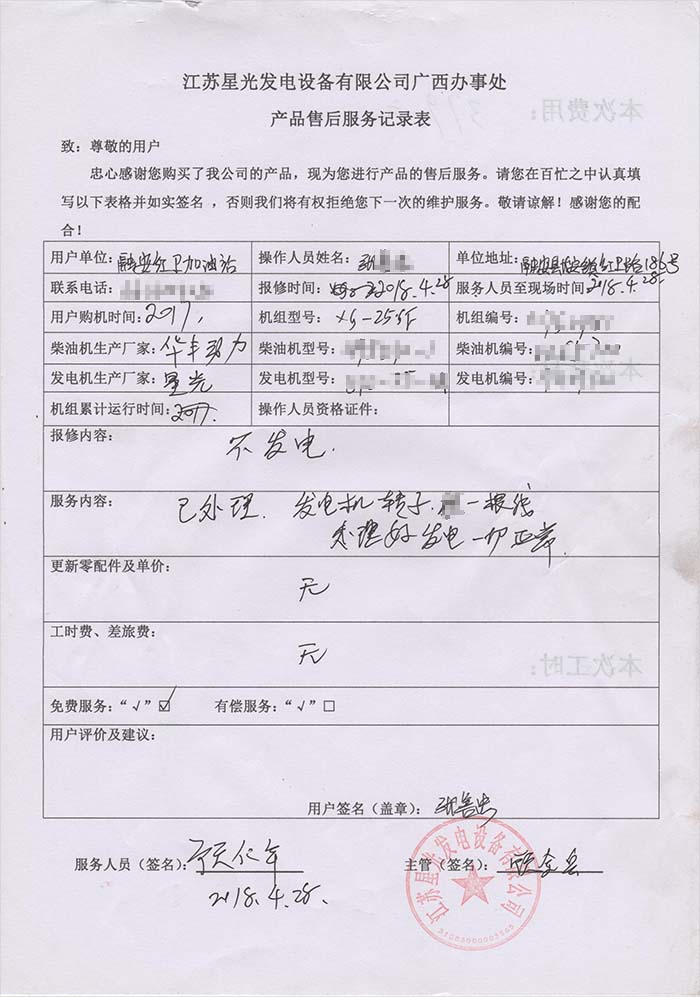 江苏星光发电设备有限公司广西办事处
产品售后服务记录表
致：尊敬的用户
忠心感谢您购买了我公司的产品，现为您进行产品的售后服务。请您在百忙之中认真填
写以下表格并如实签名，否则我们将有权拒绝您下一次的维护服务。敬请谅解！感谢您的配
合！
用户单位：融安红卫加油站 操作人员姓名： 单位地址：融安县长安镇红卫路186号
联系电话： 报修时间：2018.4.28 服务人员至现场时间2018.4.28.
用户购机时间：2017. 机组型号：XG-25GF 机组编号：
柴油机生产厂家：华丰动力 柴油机型号： 柴油机编号：
发电机生产厂家：星光 发电机型号： 发电机编号：
机组累计运行时间：2017. 操作人员资格证件：
报修内容：不发电.
服务内容：已处理. 发电机转子 一根线
处理好发电一切正常.
更新零配件及单价：
无
工时费、差旅费：
无
免费服务：“√”☑ 有偿服务：“√”□
用户评价及建议：
用户签名（盖章）：
服务人员（签名）： 主管（签名）：
2018.4.28.
江苏星光发电设备有限公司
本次费用：
本次工时：